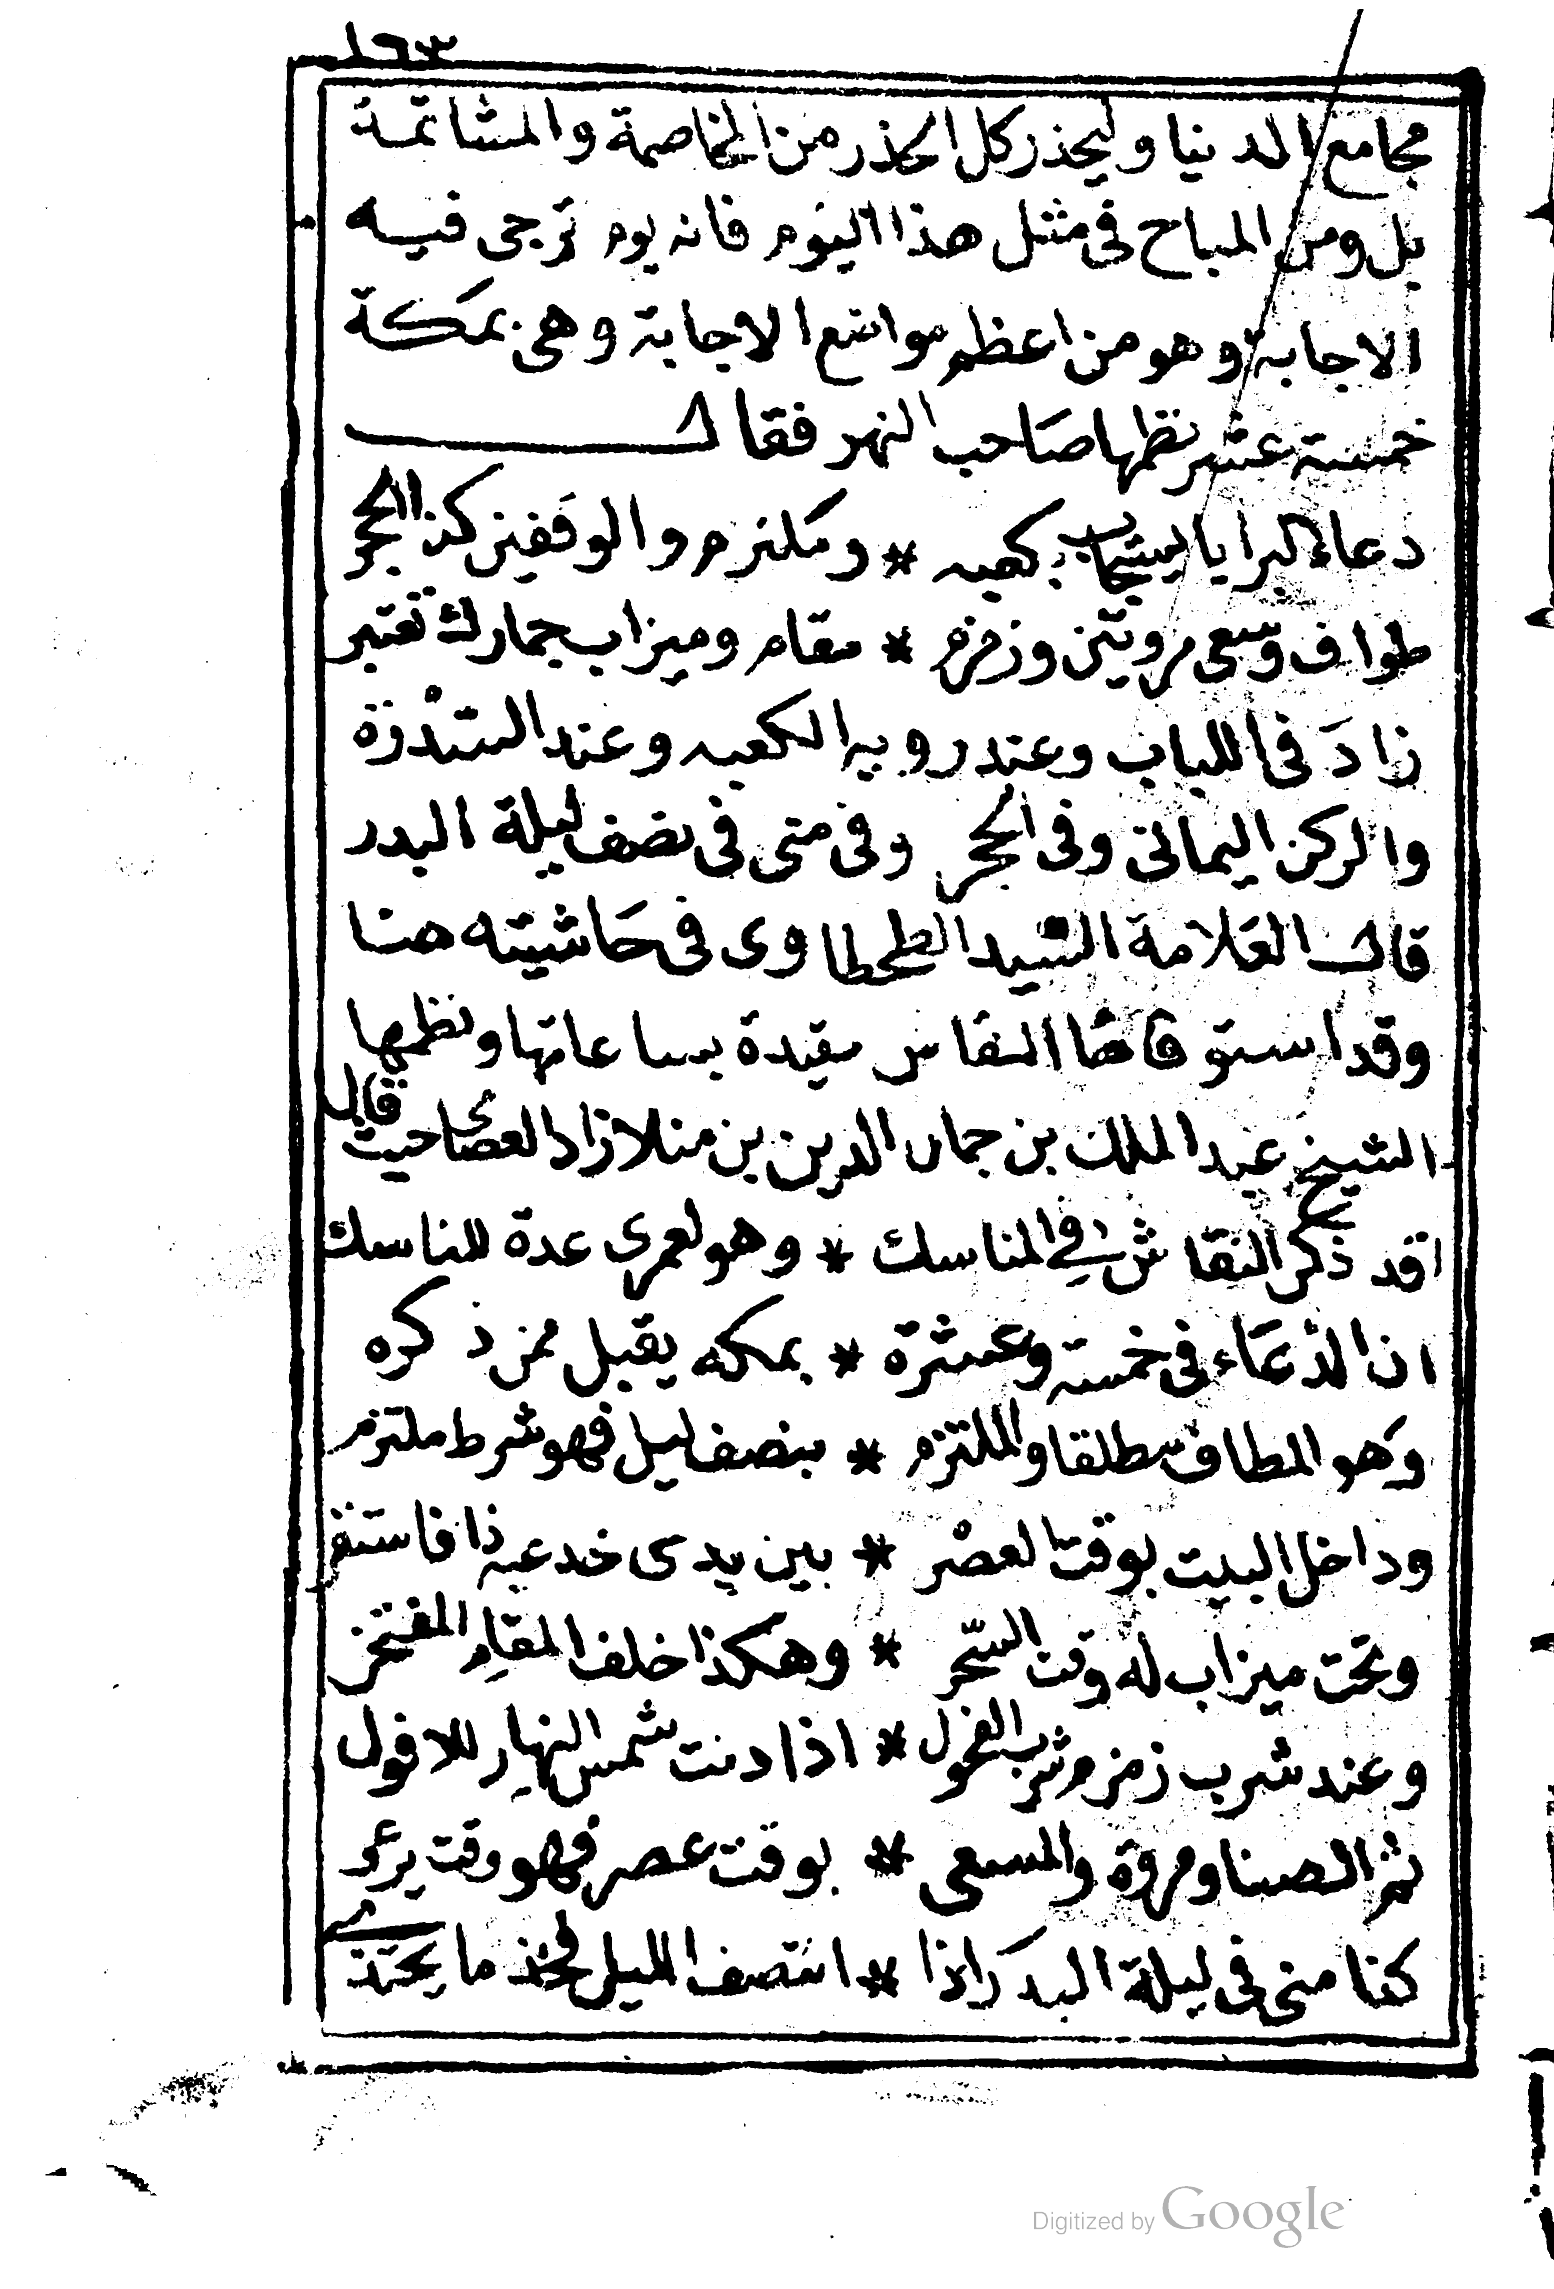 ١٦٣
مجامع الدنيا وليحذر كل الحذر من المخاصمة والمشاتمة
بل ومن المباح في مثل هذا اليوم فانه يوم ترجى فيه
الاجابة وهو من اعظم مواضع الاجابة وهي بمكة
خمسة عشر نظمها صاحب النهر فقال
دعاء البرايا يستجاب بكعبه * وملتزم والوقفين كذا الحجر
طواف وسعى مروتين وزمزم * مقام وميزاب جمارك تعتبر
زاد في اللباب وعند رويه الكعبه وعند السدرة
والركن اليماني وفي الحجر وفي منى في نصف ليلة البدر
قال العلامة السيد الطحطاوى في حاشيته هنا
وقد استوفاها النقاش مقيدة بساعاتها ونظمها
الشيخ عبد الملك بن جمال الدين بن منلا زاد العصامى حيث قال
قد ذكر النقاش في المناسك * وهو لعمرى عدة للناسك
ان الدعاء في خمسة وعشرة * بمكه يقبل ممن ذكره
وهو المطاف مطلقا والملتزم * بنصف ليل فهو شرط ملتزم
وداخل البيت بوقت العصر * بين يدى خدعيه ذا فاستقر
وتحت ميزاب له وقت السحر * وهكذا خلف المقام المفتخر
وعند شرب زمزم شرب الفحول * اذا دنت شمس النهار للافول
ثم الصفا ومروة والمسعى * بوقت عصر فهو وقت يرعى
كذا منى في ليلة البدر اذا * انتصف الليل فخذ ما يحتذى
Digitized by Google